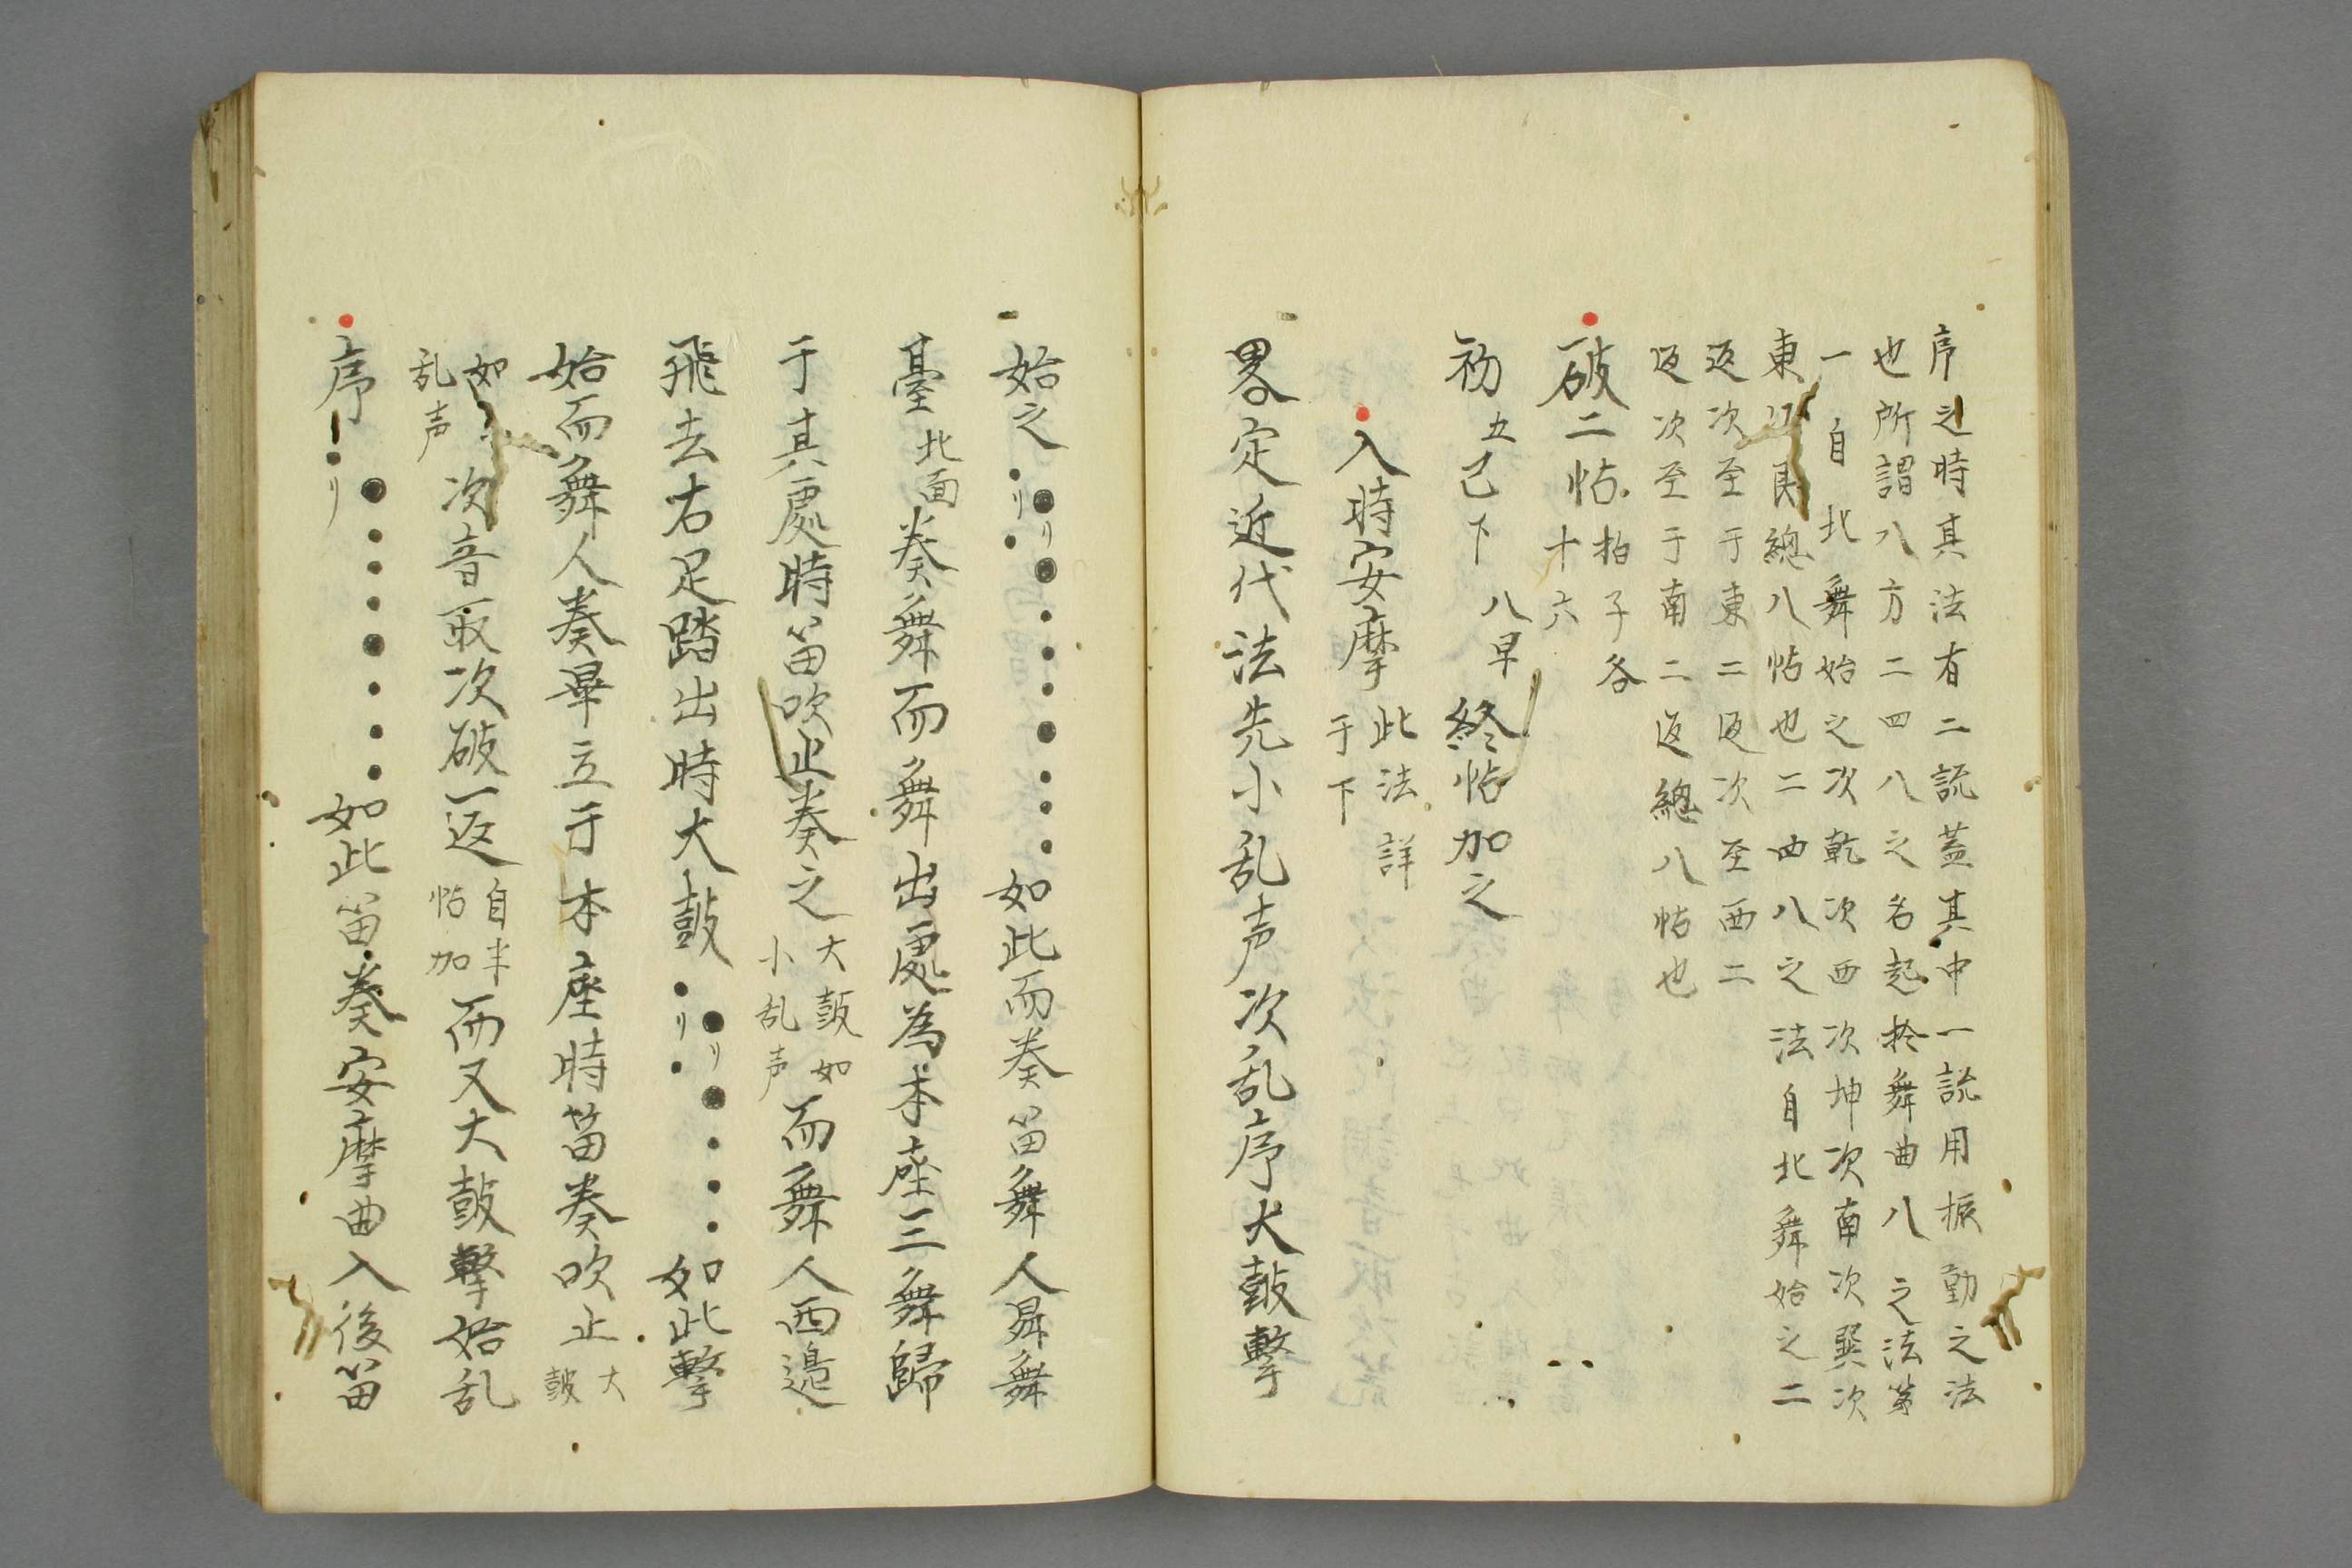 序之時其法有二説蓋其中一説用振動之法
也所謂八方二四八之名起於舞曲八之法第
一自北舞始之次乾次西次坤次南次巽次
東次艮總八帖也二四八之法自北舞始之二
返次至于東二返次至西二
返次至于南二返總八帖也
破二帖拍子各
十六
初五己下八早終帖加之
入時安摩此法詳
于下
畧定近代法先小乱声次乱序大鼓撃
始之如此而奏笛舞人昇舞
臺北面奏舞而舞出處為本座三舞歸
于其處時笛吹止奏之大鼓如
小乱声而舞人西邉
飛去右足踏出時大鼓如此撃
始而舞人奏畢立于本座時笛奏吹止大
鼓
如
乱声次音取次破一返自半
帖加而又大鼓撃始乱
序如此笛奏安摩曲入後笛